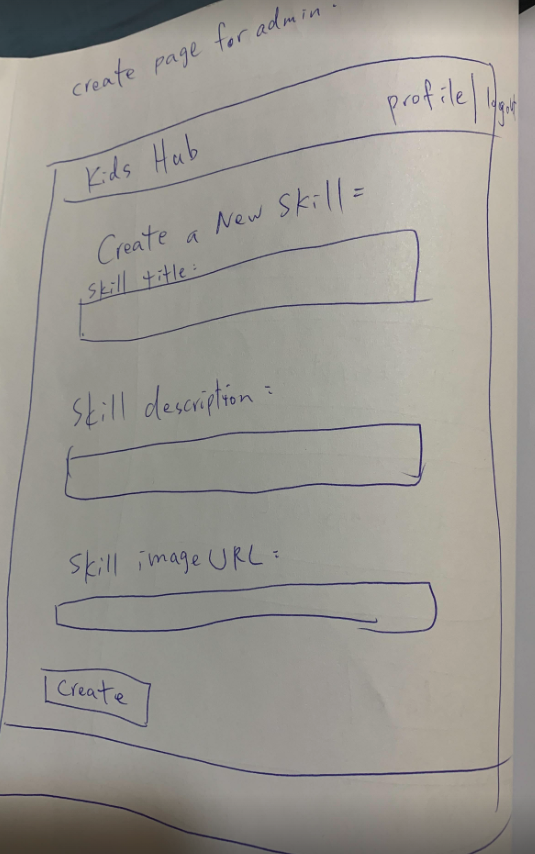 create page for admin.
profile | logout
Kids Hub
Create a New Skill=
Skill title:
Skill description:
Skill image URL:
Create